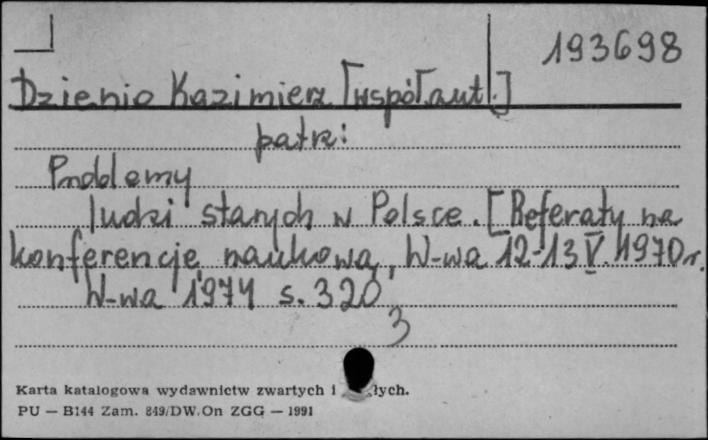 193698
Dzienio Kazimierz [współaut.]
patrz:
Problemy
ludzi starych w Polsce. [Referaty na
konferencję naukową, W-wa 12-13 V. 1970 r.
W-wa 1974 s. 320
3
Karta katalogowa wydawnictw zwartych i łych.
PU — B144 Zam. 849/DW.On ZGG — 1991